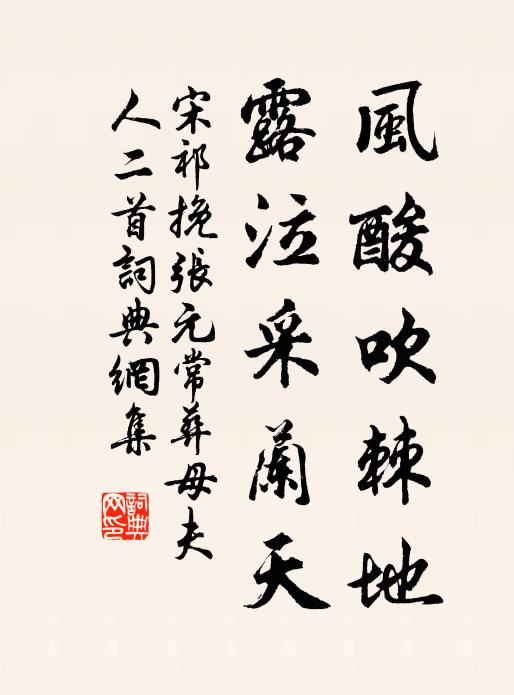 風酸吹棘地
露泣采蘭天
宋祁挽張元常葬母夫
人二首詞典網集
詞典
网印